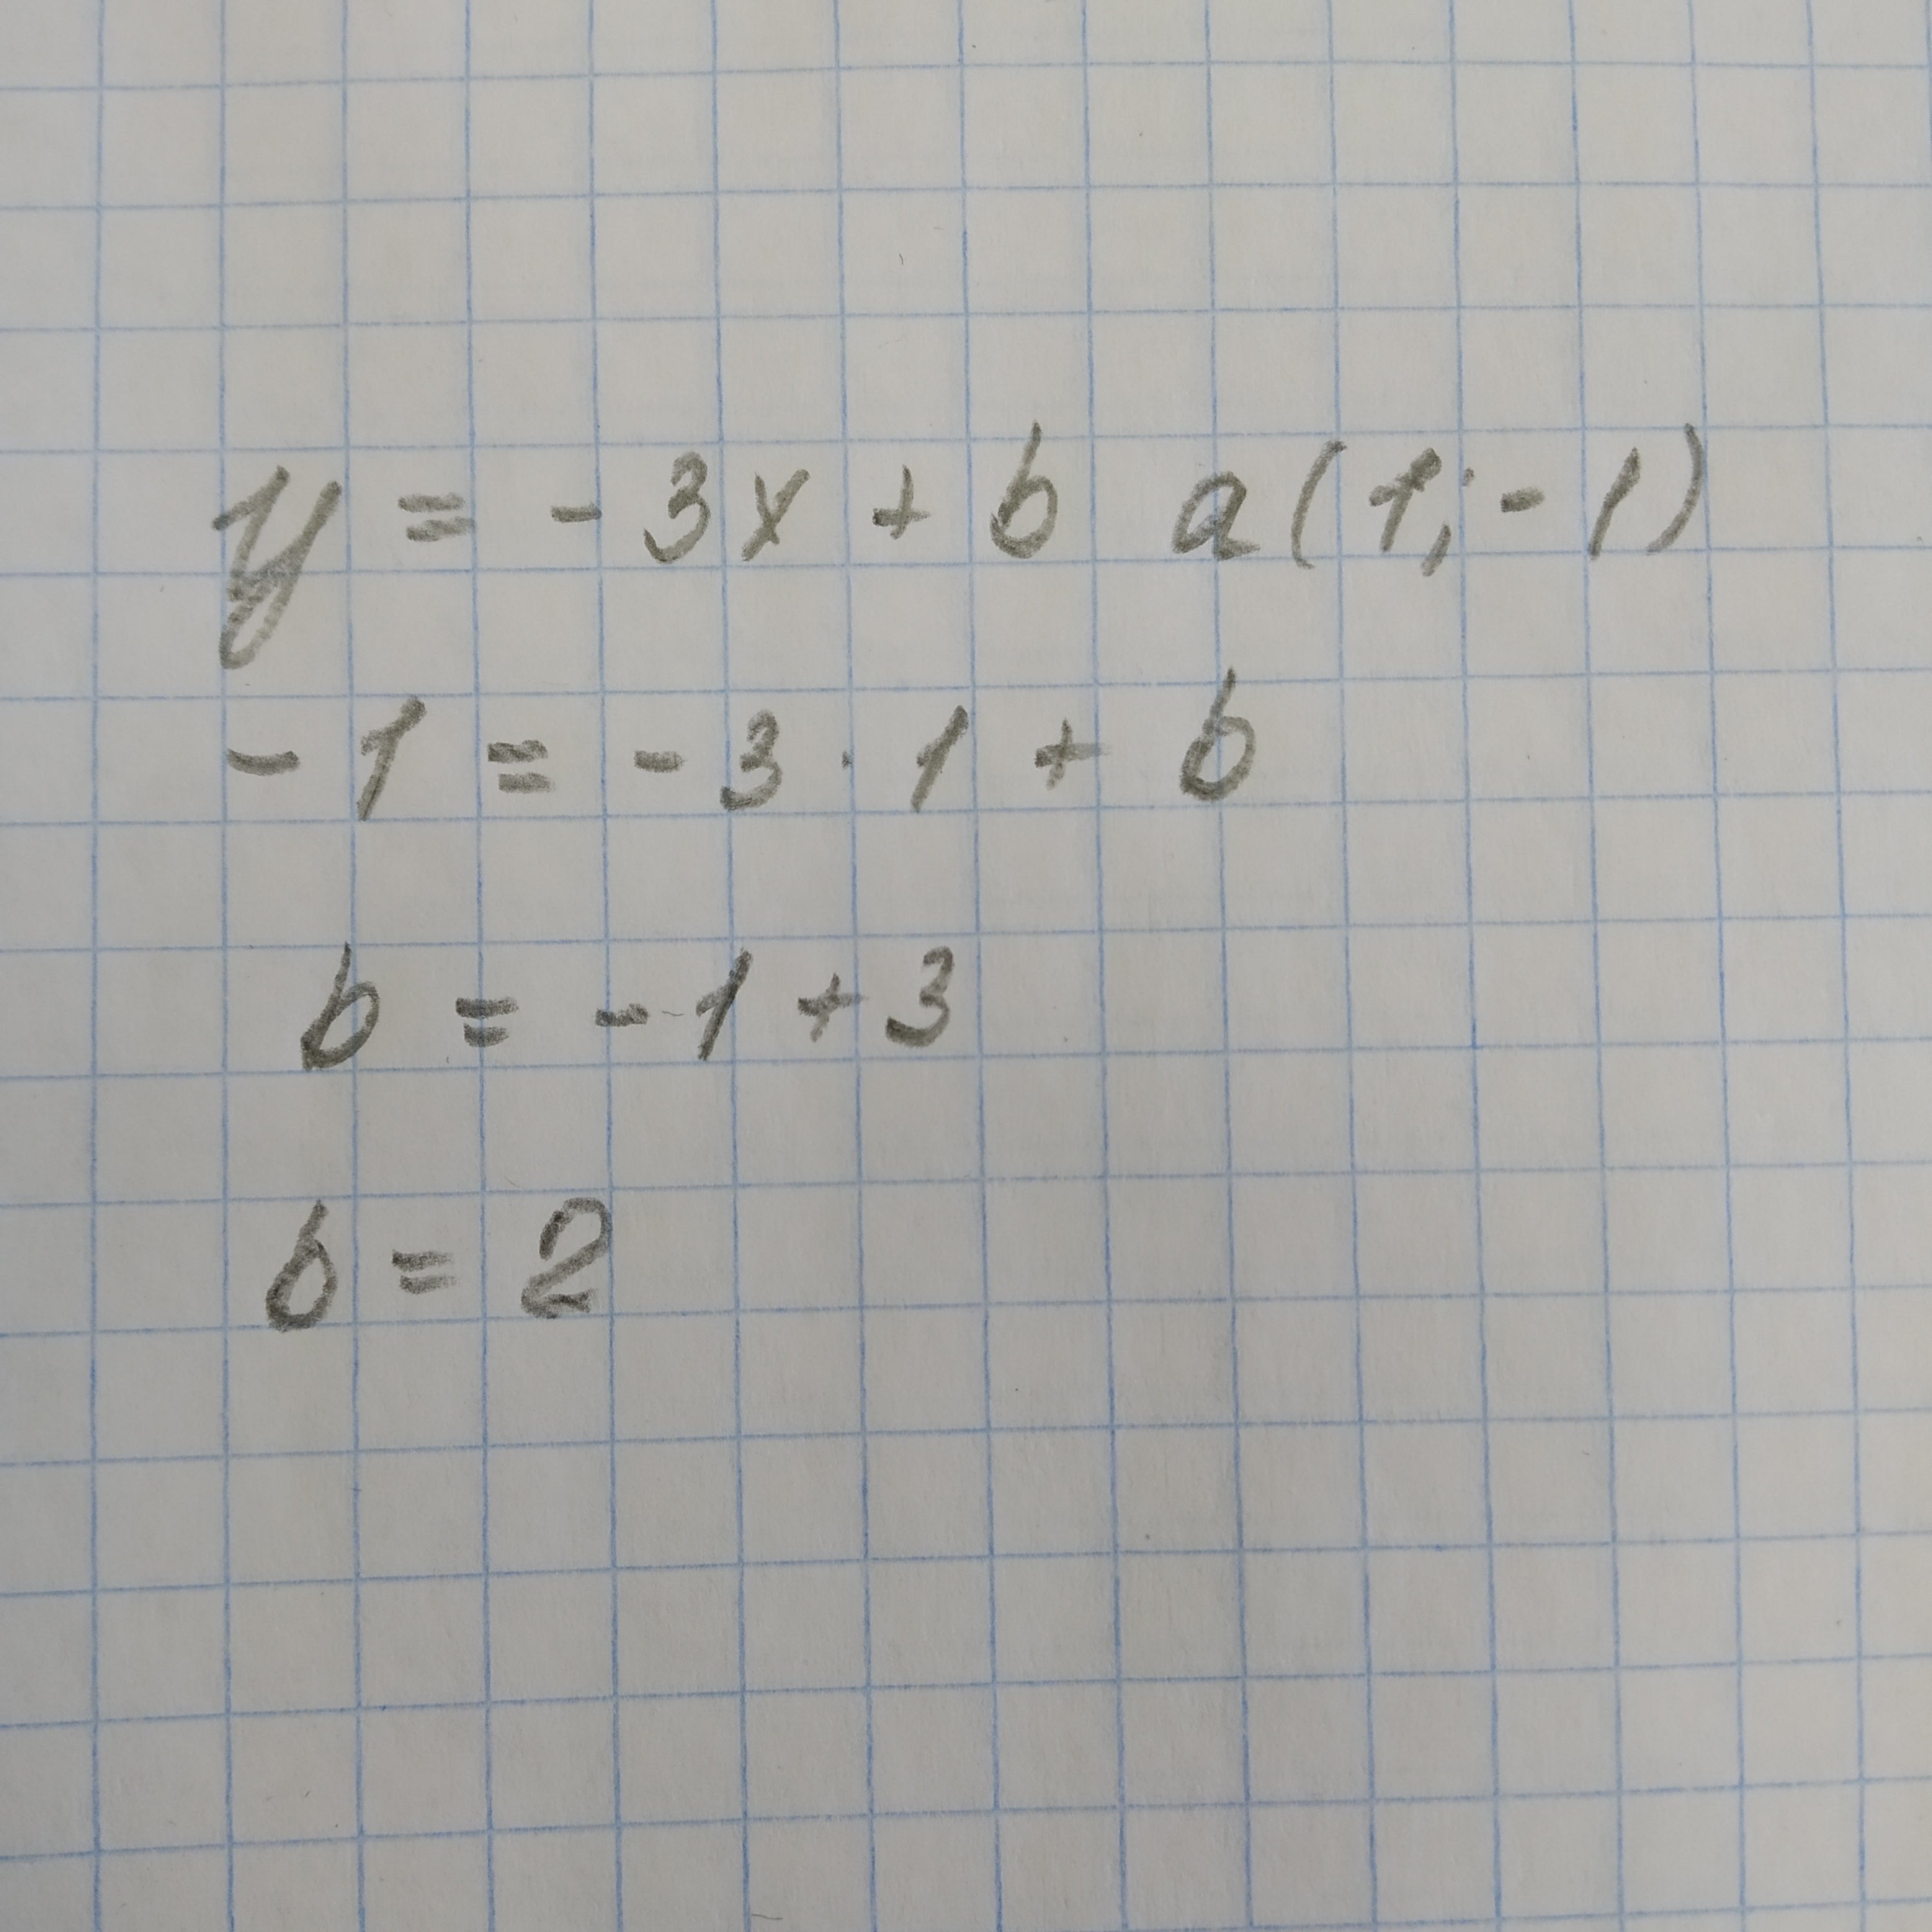 y = -3x + b a(1; -1)
-1 = -3 · 1 + b
b = -1 + 3
b = 2